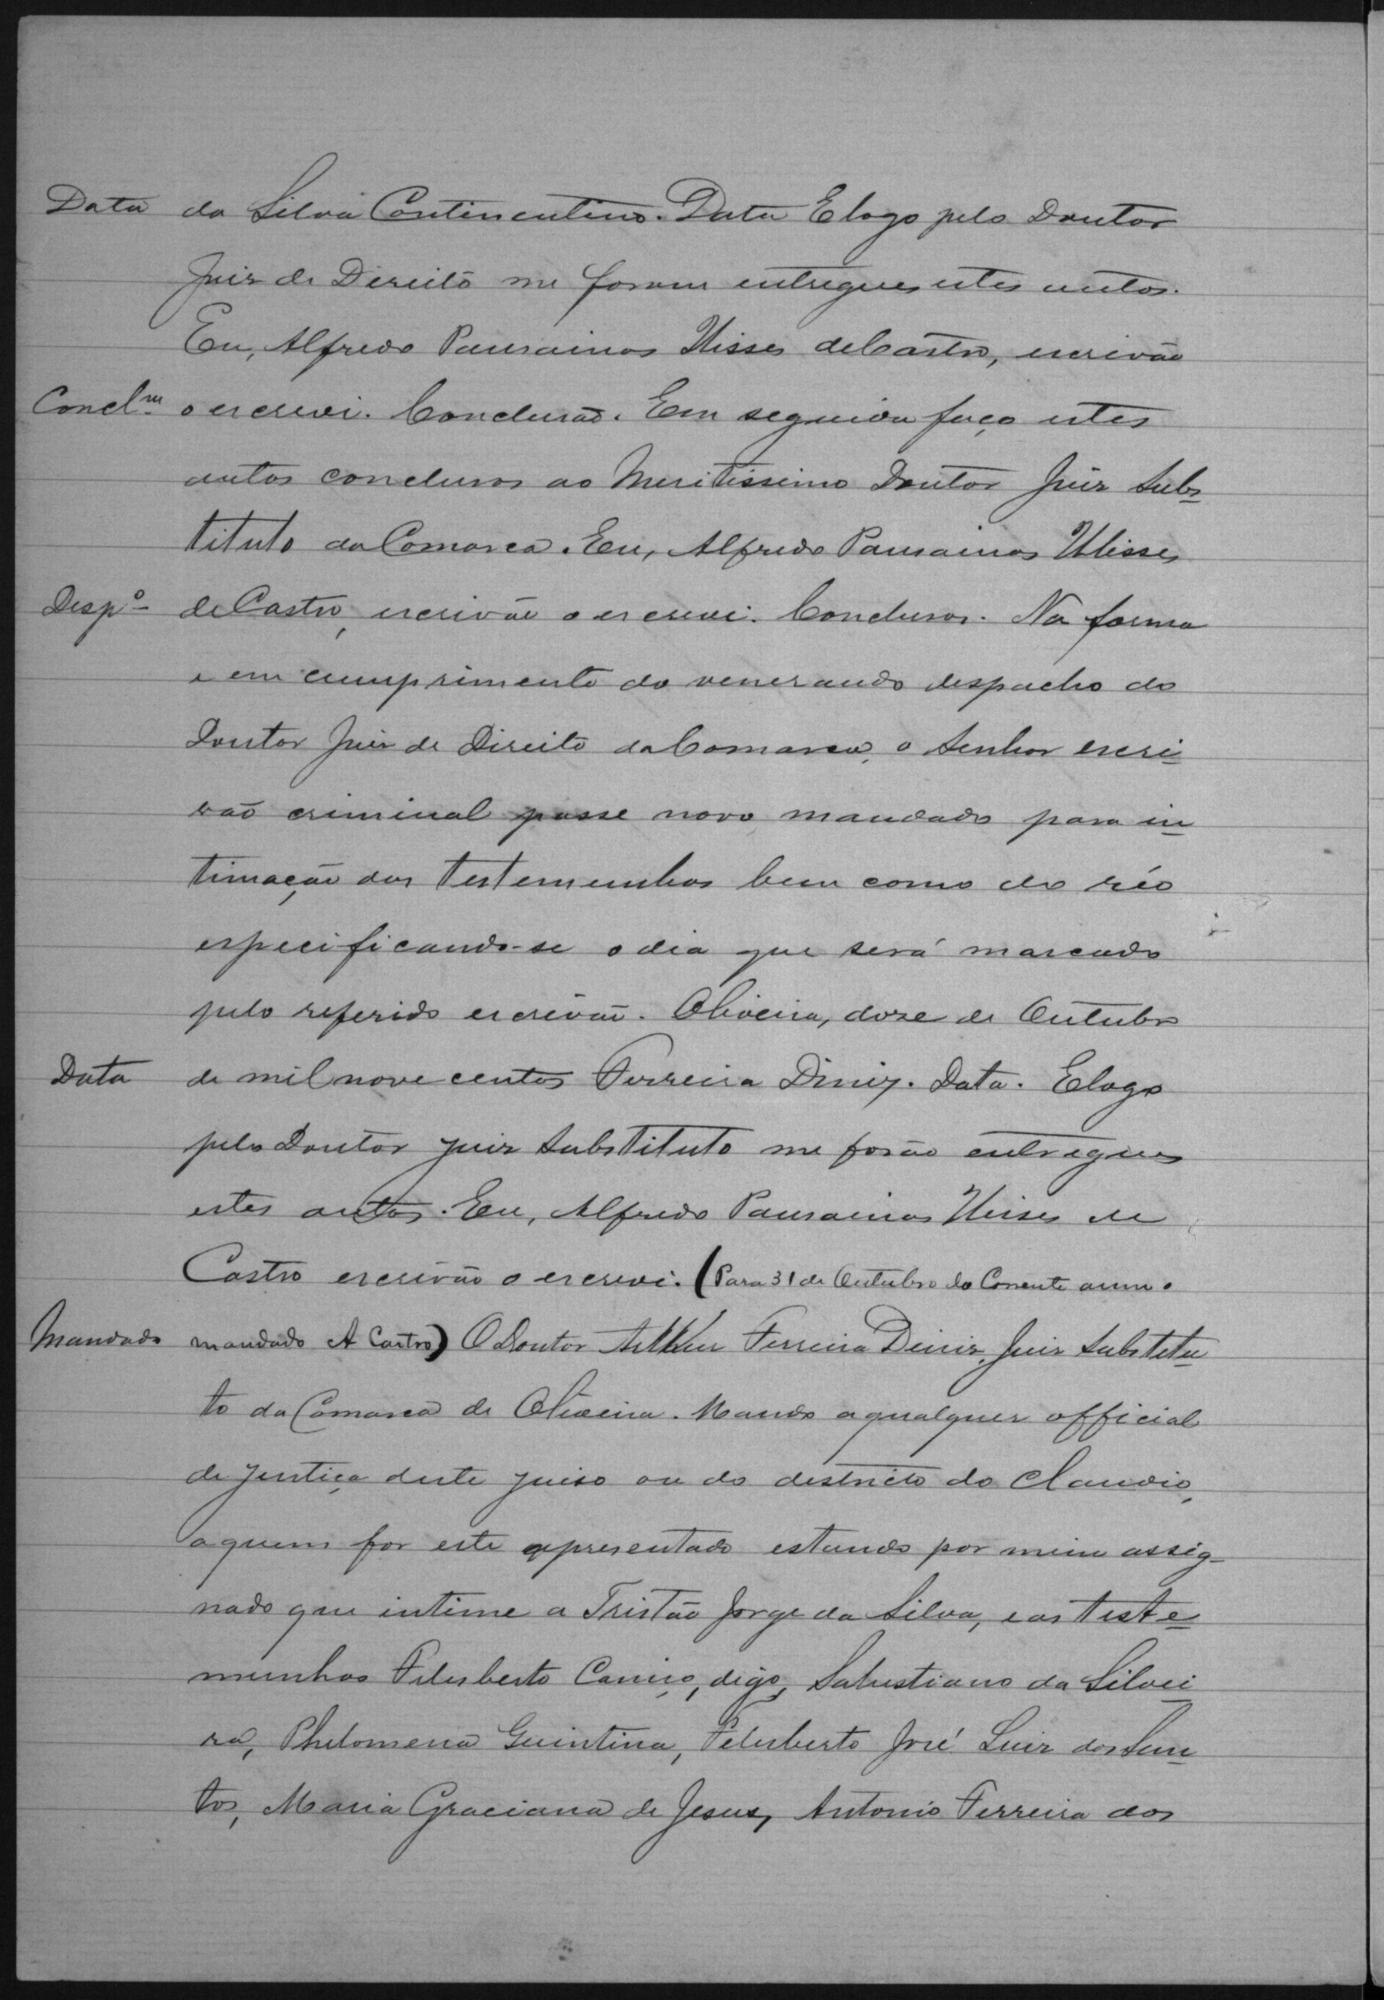 Data da Silva Continentino. Data E logo pelo Doutor
Juiz de Direito me foram entregues estes autos.
Eu, Alfredo Pausainas Ulisses de Castro, escrivão
Concl.m o escrevi. Conclusão. Em seguida faço estes
autos conclusos ao Meritissimo Doutor Juiz Subs-
tituto da Comarca. Eu, Alfredo Pausainas Ulisses
Desp.º de Castro, escrivão o escrevi. Conclusos. Na forma
e em cumprimento do venerando despacho do
Doutor Juiz de Direito da Comarca, o Senhor escri-
vão criminal passe novo mandado para in-
timação das testemunhas bem como do réo
especificando-se o dia que será marcado
pelo referido escrivão. Oliveira, doze de Outubro
Data de mil nove centos Ferreira Diniz. Data. E logo
pelo Doutor juiz Substituto me forão entregues
estes autos. Eu, Alfredo Pausainas Ulisses de
Castro escrivão o escrevi. (Para 31 de Outubro do Corrente anno
Mandado mandado A Castro) O Doutor Arthur Ferreira Diniz, Juiz Substitu-
to da Comarca de Oliveira. Mando a qualquer official
de justiça deste juiso ou do districto do Claudio,
a quem for este apresentado estando por mim assig-
nado que intime a Tristão Jorge da Silva, e as teste-
munhas Felisberto Caniço, digo, Salustiano da Silvei-
ra, Philomena Quintina, Felisberto José Luiz dos San-
tos, Maria Graciana de Jesus, Antonio Ferreira dos